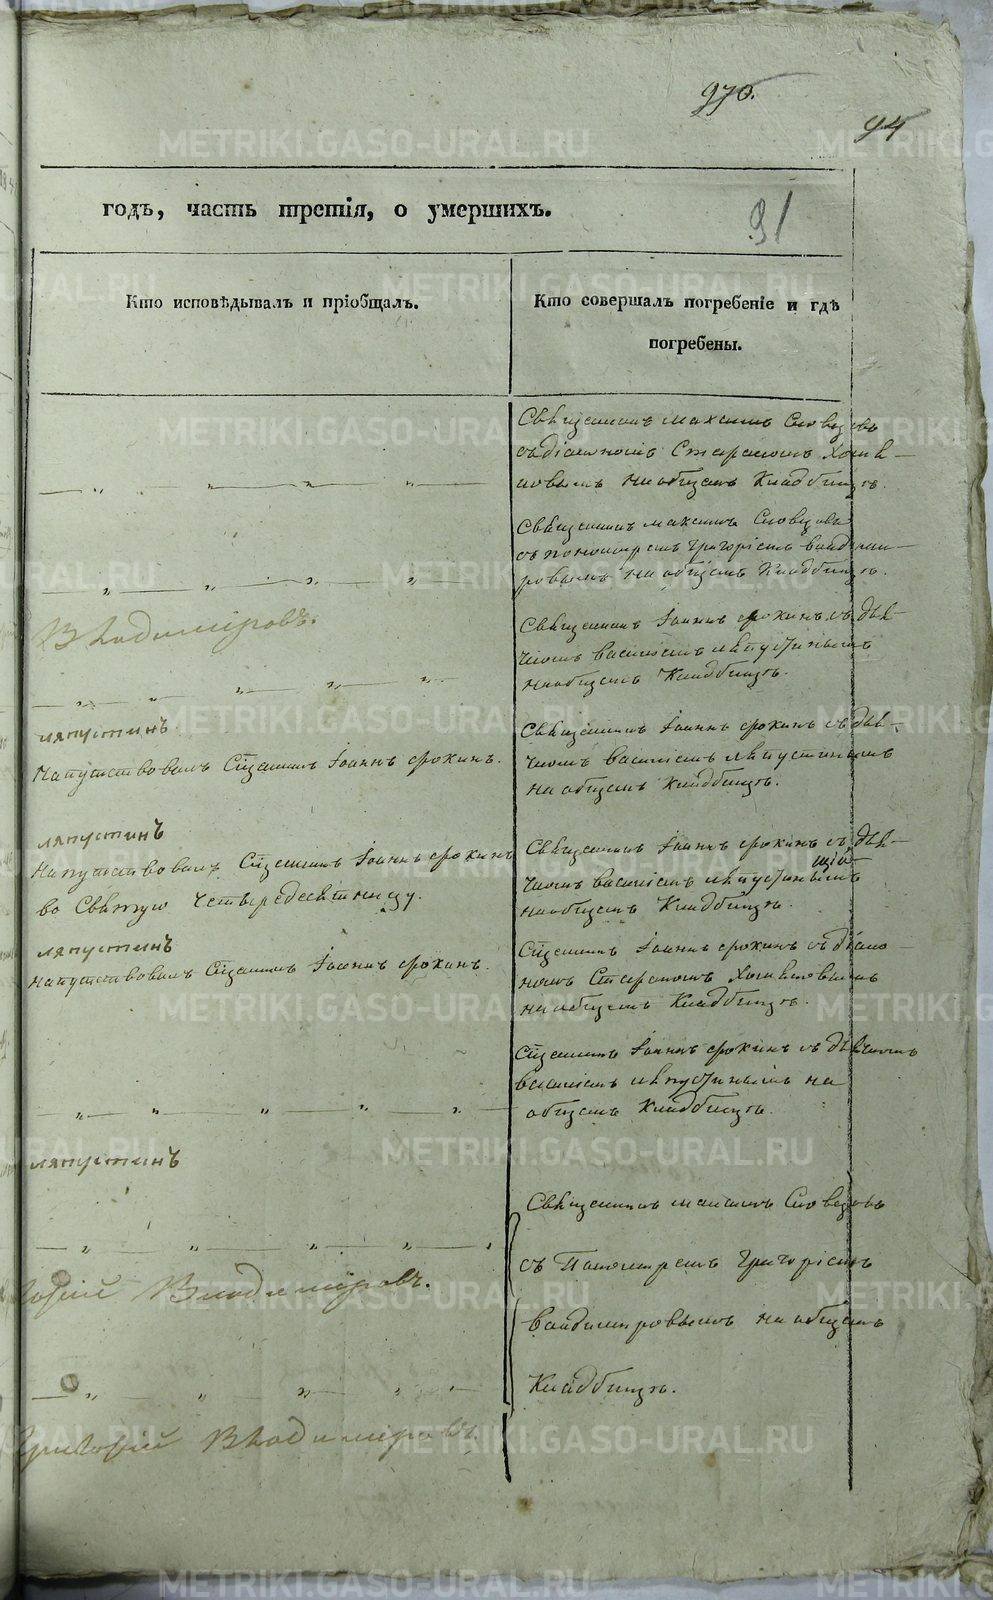 970.
94
годъ, часть третія, о умершихъ.
91
Кто исповѣдывалъ и пріобщалъ.
Кто совершалъ погребеніе и гдѣ
погребены.
Священникъ Максимъ Словцовъ
съ діакономъ Стефаномъ
на общемъ Кладбищѣ.
Священникъ Максимъ Словцовъ
съ пономаремъ Григоріемъ Влодими-
ровымъ на общемъ Кладбищѣ.
Влодиміровъ.
Священникъ Іоаннъ Ерохинъ съ дья-
чкомъ Василіемъ Ляпустинымъ
на общемъ Кладбищѣ.
ляпустинъ
Напутствовалъ Сщенникъ Іоаннъ Ерохинъ.
Священникъ Іоаннъ Ерохинъ съ дья-
чкомъ Василіемъ Ляпустинымъ
на общемъ Кладбищѣ.
ляпустинъ
Напутствовалъ Сщенникъ Іоаннъ Ерохинъ
во Святую Четыредесятницу.
Священникъ Іоаннъ Ерохинъ съ дья-
чкомъ Василіемъ Ляпустинымъ
на общемъ Кладбищѣ.
ляпустинъ
напутствовалъ Сщенникъ Іоаннъ Ерохинъ.
Сщенникъ Іоаннъ Ерохинъ съ діако-
номъ Стефаномъ
на общемъ Кладбищѣ.
Сщенникъ Іоаннъ Ерохинъ съ дьячкомъ
Василіемъ Ляпустинымъ на
общемъ Кладбищѣ.
ляпустинъ
Священникъ Максимъ Словцовъ
съ Пономаремъ Григоріемъ
Влодимировымъ на общемъ
Кладбищѣ.
Влодиміровъ.
Григорій Влодиміровъ
METRIKI.GASO-URAL.RU